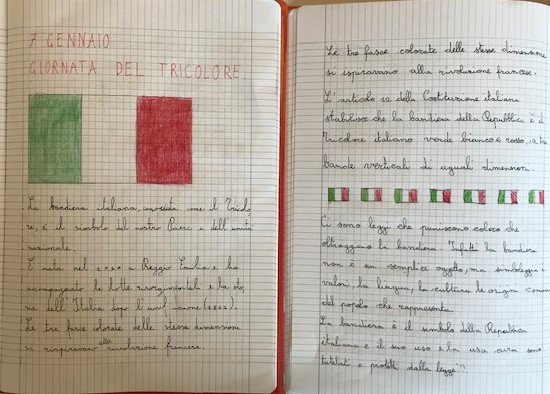 7 GENNAIO
GIORNATA DEL TRICOLORE
La bandiera italiana, conosciuta come il Tricolo
re, è il simbolo del nostro Paese e dell'unità
nazionale.
È nata nel a Reggio Emilia e ha
accompagnato le lotte risorgimentali e la sto
ria dell'Italia dopo l'
Le tre fasce colorate delle stesse dimensioni
si ispiravano alla rivoluzione francese.
Le tre fasce colorate delle stesse dimensioni
si ispiravano alla rivoluzione francese.
L'articolo 12 della Costituzione italiana
stabilisce che la bandiera della Repubblica è il
Tricolore italiano verde bianco e rosso, a tre
bande verticali di uguali dimensioni.
Ci sono leggi che puniscono coloro che
oltraggiano la bandiera. Infatti la bandiera
non è un semplice oggetto, ma simboleggia i
valori, la lingua, la cultura le origini comuni
del popolo che rappresenta.
La bandiera è il simbolo della Repubblica
italiana e il suo uso e la sua cura sono
tutelati e protetti dalla legge"